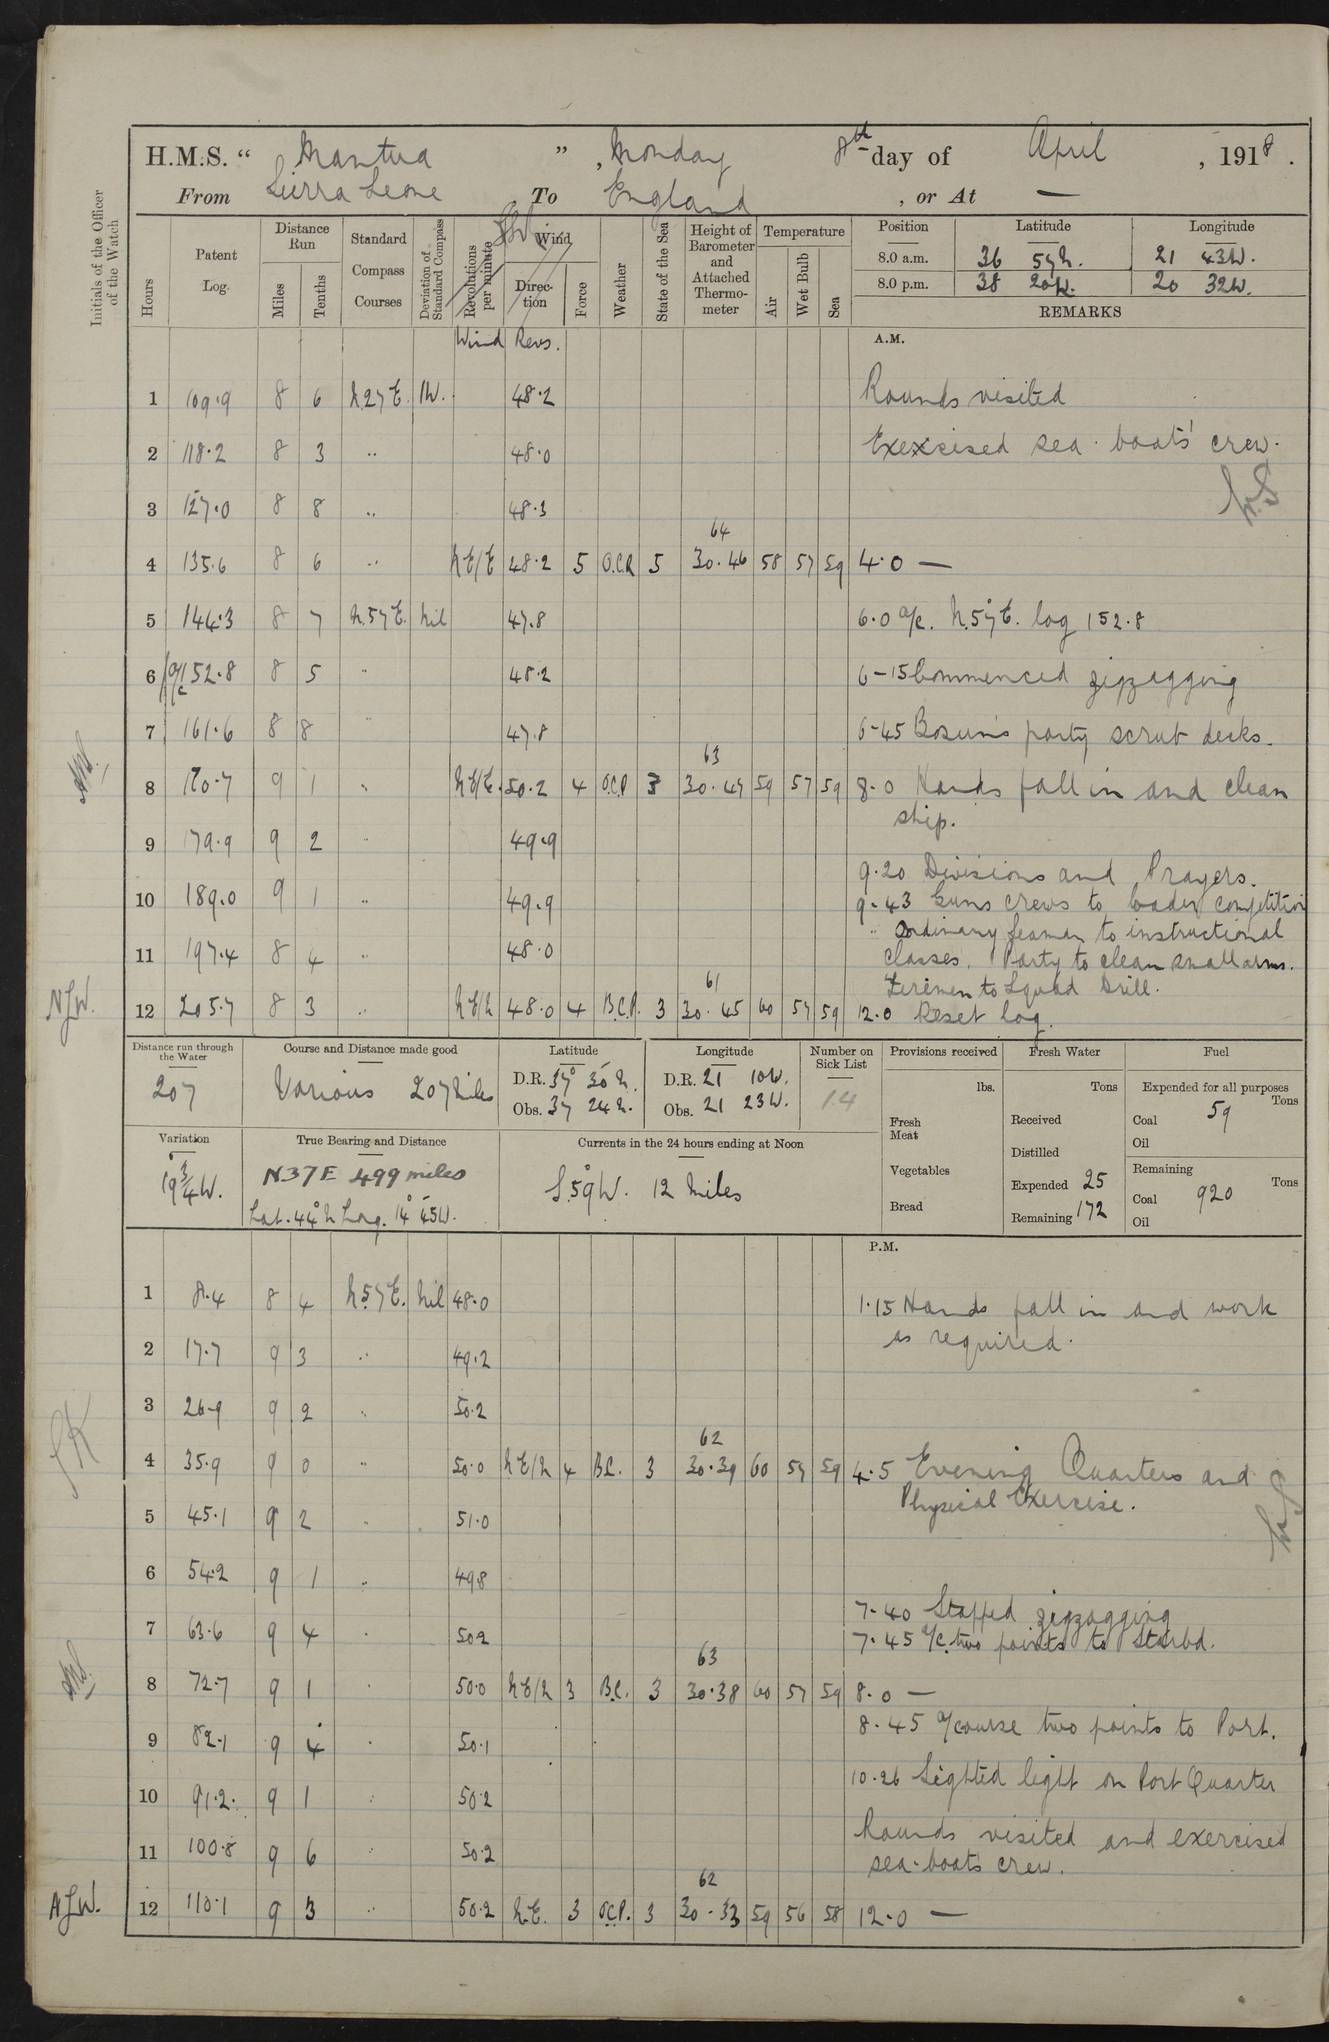 H.M.S. “ Mantua ” , Monday 8th day of April , 1918 .
From Sierra Leone , To England , or At —
Initials of the Officer of the Watch
Hours
Patent Log.
Distance Run
Miles
Tenths
Standard Compass Courses
Deviation of Standard Compass
Revolutions per minute
Wind
Direction
Force
Weather
State of the Sea
Height of Barometer and Attached Thermometer
Temperature
Air
Wet Bulb
Sea
Position Latitude Longitude
8.0 a.m. 36 57N. 21 43W.
8.0 p.m. 38 20W. 20 32W.
REMARKS
Wind Revs.
A.M.
1 109.9 8 6 N.27E. 1W. 48.2 Rounds visited
2 118.2 8 3 " 48.0 Exexcised sea-boats' crew.
3 127.0 8 8 " 48.3
64
4 135.6 8 6 " NE/E 48.2 5 O.C.R 5 30.46 58 57 59 4.0 —
5 144.3 8 7 N.57E. Nil 47.8 6.0 a/c. N.57°E. log 152.8
6 a/c 152.8 8 5 " 48.2 6-15 Commenced zigzagging
7 161.6 8 8 " 47.8 6-45 Bosun's party scrub decks.
63
8 170.7 9 1 " NE/E. 50.2 4 O.C.P 3 30.47 59 57 59 8.0 Hands fall in and clean
ship.
9 179.9 9 2 " 49.9
9.20 Divisions and Prayers.
10 189.0 9 1 " 49.9 9.43 Guns crews to loader competition
" Ordinary Seaman to instructional
11 197.4 8 4 " 48.0 classes. Party to clean small arms.
61
Firemen to Squad Drill.
NJW. 12 205.7 8 3 " NE/N 48.0 4 B.C.P. 3 30.45 60 57 59 12.0 Reset log.
Distance run through the Water
207
Course and Distance made good
Various 207 Miles
Latitude
D.R. 37° 30 N.
Obs. 37 24 N.
Longitude
D.R. 21 10W.
Obs. 21 23W.
Number on Sick List
14
Provisions received
lbs.
Fresh Meat
Vegetables
Bread
Fresh Water
Tons
Received
Distilled
Expended 25
Remaining 172
Fuel
Expended for all purposes
Tons
Coal 59
Oil
Remaining
Tons
Coal 920
Oil
Variation
19 3/4°W.
True Bearing and Distance
N37E 499 miles
Lat. 44° N Long. 14° 45W.
Currents in the 24 hours ending at Noon
S.59°W. 12 Miles
P.M.
1 8.4 8 4 N.57E. Nil 48.0 1.15 Hands fall in and work
as required.
2 17.7 9 3 " 49.2
3 26.9 9 2 " 50.2
62
4 35.9 9 0 " 50.0 NE/N 4 B.C. 3 30.39 60 57 59 4.5 Evening Quarters and
Physical Exercise.
5 45.1 9 2 " 51.0
6 54.2 9 1 " 49.8
7.40 Stopped zigzagging
7 63.6 9 4 " 50.2 7.45 a/c. two points to Starbd.
63
8 72.7 9 1 " 50.0 NE/N 3 B.C. 3 30.38 60 57 59 8.0 —
8.45 a/course two points to Port.
9 82.1 9 4 " 50.1
10.26 Sighted light on Port Quarter
10 91.2. 9 1 " 50.2
Rounds visited and exercised
11 100.8 9 6 " 50.2 sea-boats crew.
62
AJW. 12 110.1 9 3 " 50.2 N.E. 3 O.C.P. 3 30.33 59 56 58 12.0 —